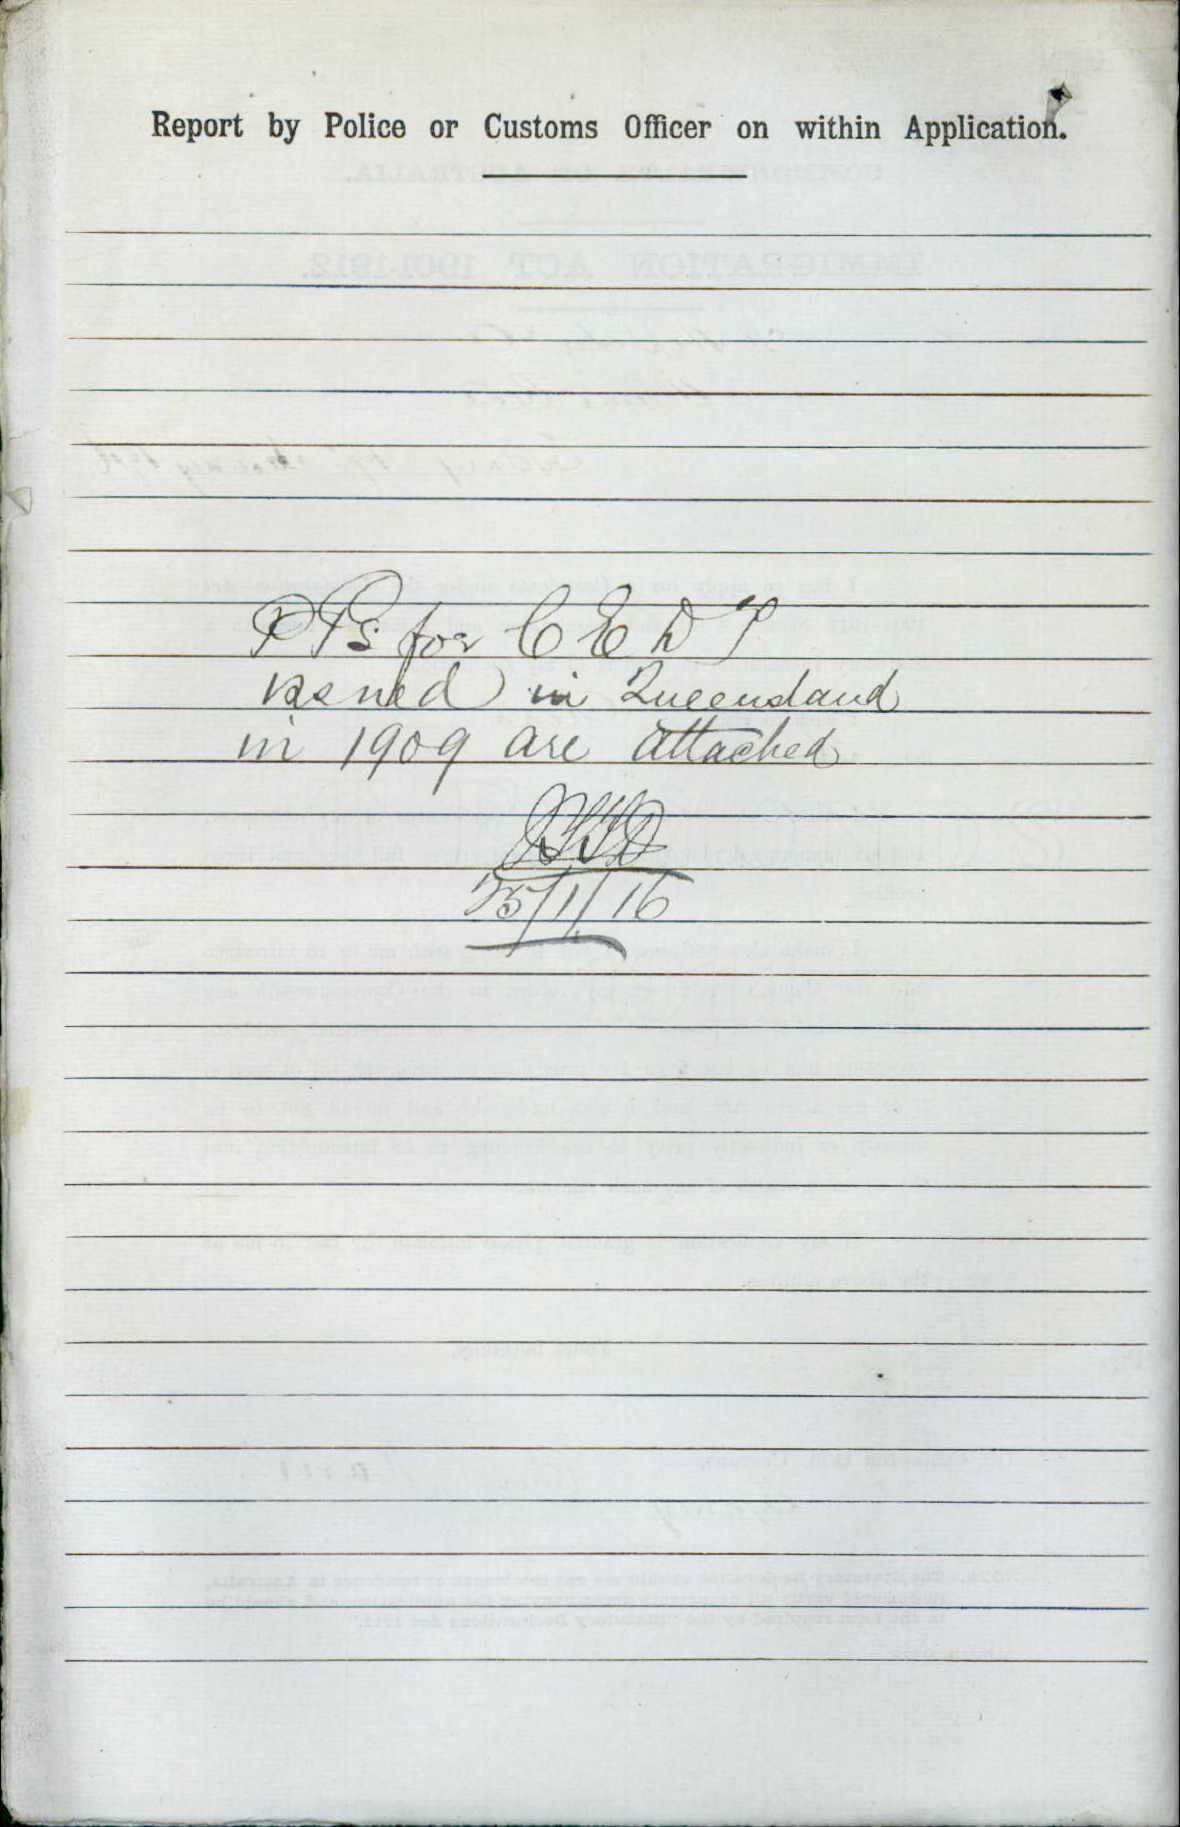 Report by Police or Customs Officer on within Application.
for C E D T
issued in Queensland
in 1909 are attached
25/1/16